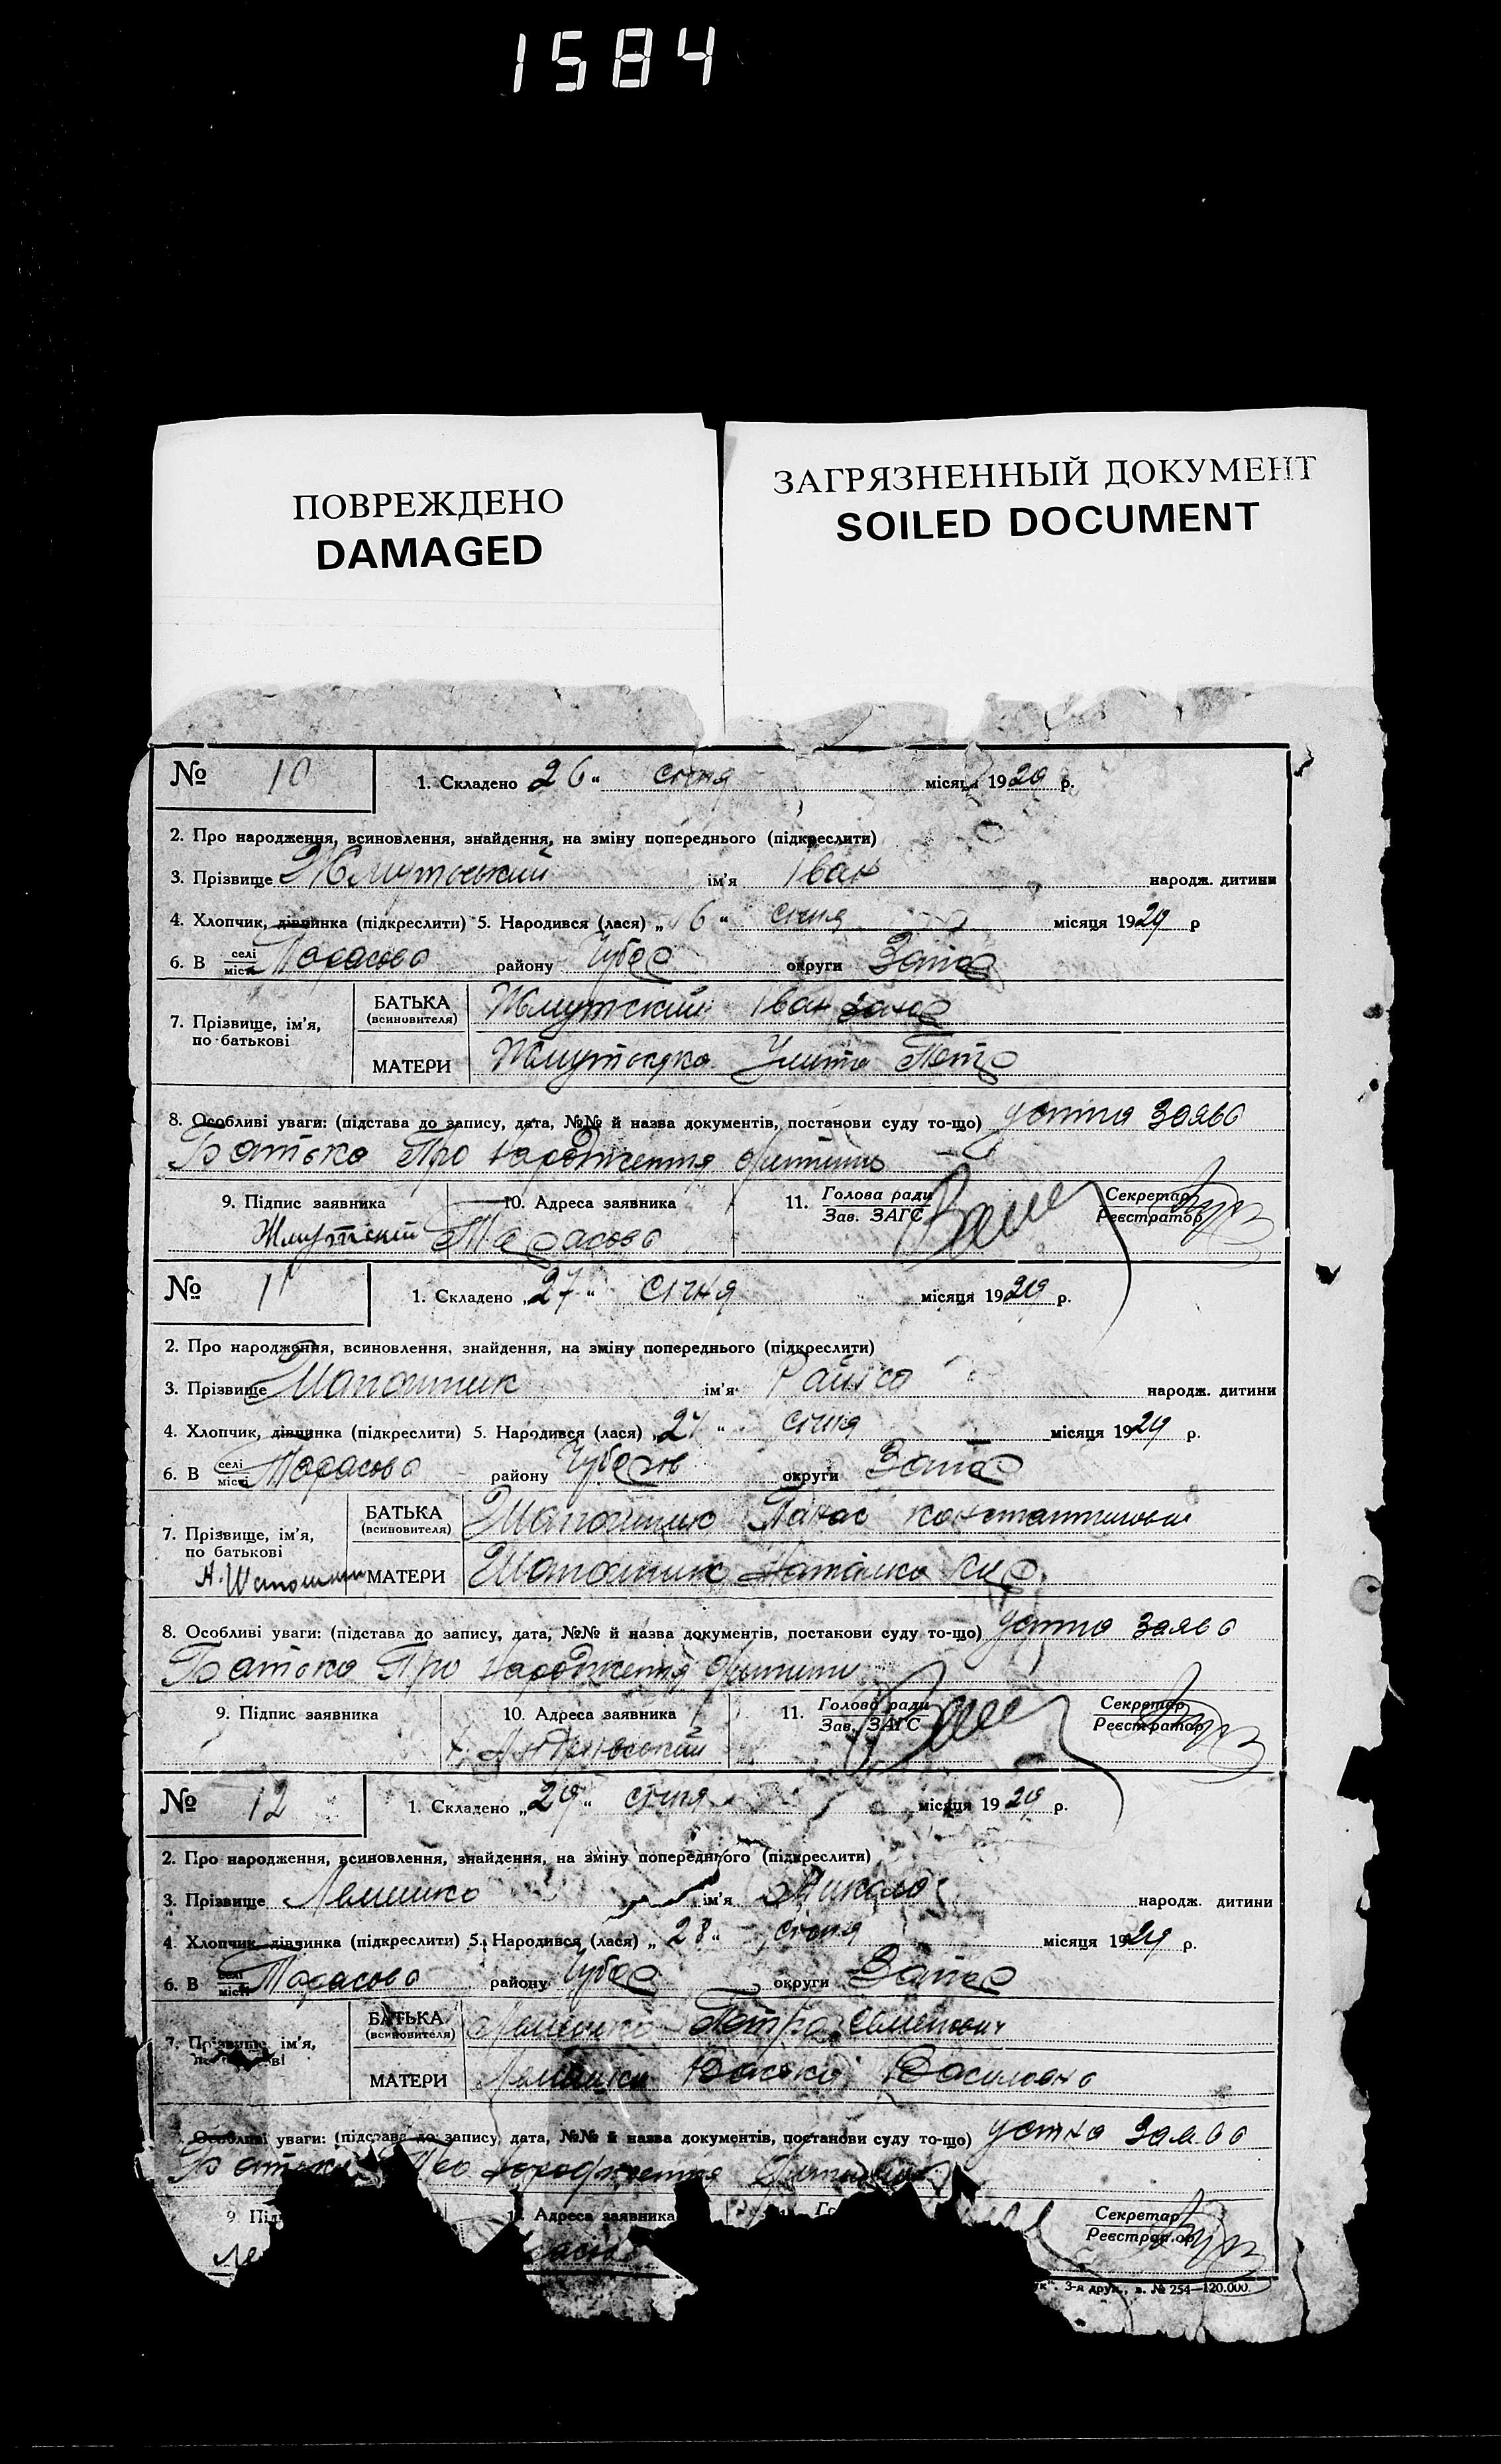 1584
ПОВРЕЖДЕНО
DAMAGED
ЗАГРЯЗНЕННЫЙ ДОКУМЕНТ
SOILED DOCUMENT
№ 10
1. Складено 26 " січня місяця 1929 р.
2. Про народження, всиновлення, знайдення, на зміну попереднього (підкреслити)
3. Прізвище ім'я Іван народж. дитини
4. Хлопчик, дівчинка (підкреслити) 5. Народився (лася) „ 6 " січня місяця 1929 р
6. В селі місті Тарасово району Чубар округи Запор
7. Прізвище, ім'я, по батькові
БАТЬКА (всиновителя) Жмутский Іван
МАТЕРИ Улита Петр
8. Особливі уваги: (підстава до запису, дата, №№ й назва документів, постанови суду то-що) устна заява
Батька Про народження дитини
9. Підпис заявника 10. Адреса заявника 11. Голова ради Зав. ЗАГС Секретар Реєстратор
Жмутский Тарасово
№ 11
1. Складено „27 " січня місяця 1929 р.
2. Про народження, всиновлення, знайдення, на зміну попереднього (підкреслити)
3. Прізвище Шапошник ім'я Раїса народж. дитини
4. Хлопчик, дівчинка (підкреслити) 5. Народився (лася) „27 " січня місяця 1929 р.
6. В селі місті Тарасово району округи Запор
7. Прізвище, ім'я, по батькові
БАТЬКА (всиновителя) Шапошник Панас
МАТЕРИ Шапошник Наталка
8. Особливі уваги: (підстава до запису, дата, №№ й назва документів, постанови суду то-що) устна заява
Батька Про народження дитини
9. Підпис заявника 10. Адреса заявника 11. Голова ради Зав. ЗАГС Секретар Реєстратор
№ 12
1. Складено „29 " січня місяця 1929 р.
2. Про народження, всиновлення, знайдення, на зміну попереднього (підкреслити)
3. Прізвище Лемешко ім'я Микола народж. дитини
4. Хлопчик, дівчинка (підкреслити) 5. Народився (лася) „ 28 " січня місяця 1929 р.
6. В селі місті Тарасово району Чубар округи Запор
7. Прізвище, ім'я,
БАТЬКА (всиновителя) Лемешко Петро Семенович
МАТЕРИ Василівна
Особливі уваги: (підстава до запису, дата, №№ й назва документів, постанови суду то-що) устна заява
Батька Про народження дитини
9. Адреса заявника Секретар Реєстратор
3-я друк., з. № 254—120.000.